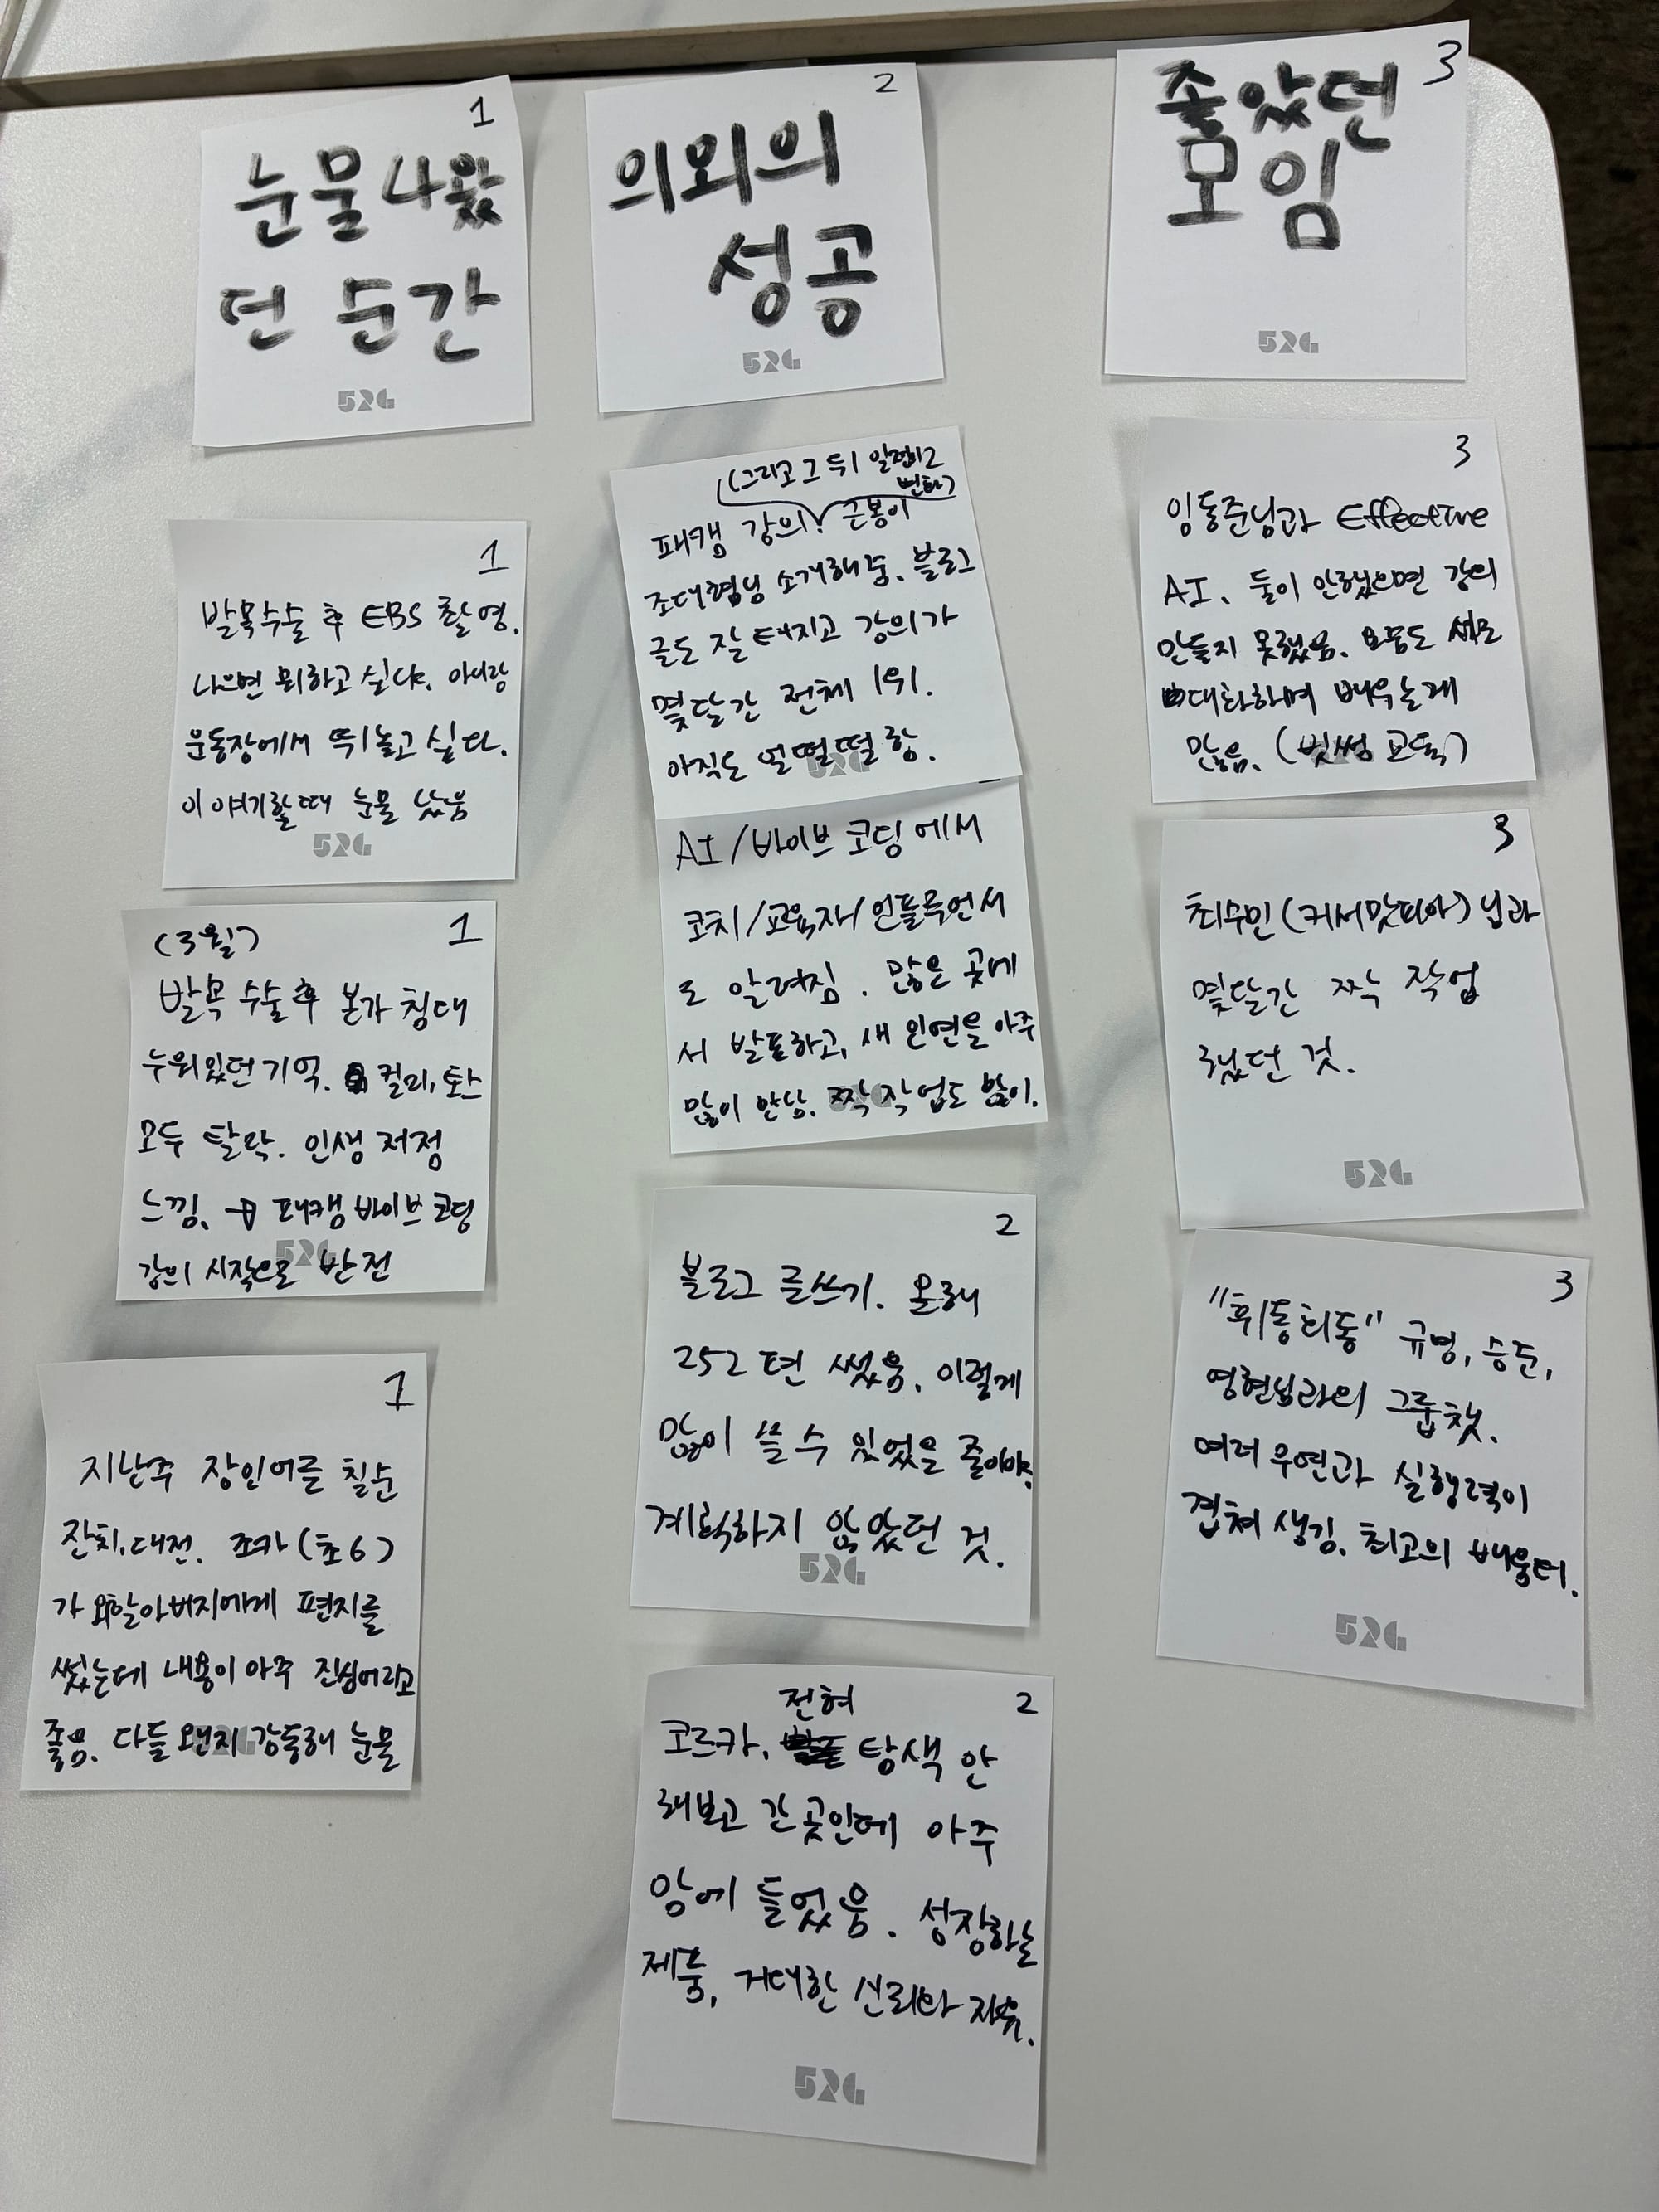 1
눈물 나왔
던 순간
52G
1
발목수술 후 EBS 촬영.
나으면 뭐하고 싶냐.
운동장에서 뛰놀고 싶다.
이 얘기할 때 눈물 났음
52G
(3월)
1
발목 수술 후 본가 침대
누워있던 기억. 컬리, 토스
모두 탈락. 인생 저점
느낌. → 패캠 바이브 코딩
강의 시작으로 반전
52G
1
지난주 장인어른 칠순
잔치, 대전. 조카(초6)
가 외할아버지에게 편지를
썼는데 내용이 아주 진심어리고
좋음. 다들 왠지 감동해 눈물
52G
2
의외의
성공
52G
(그리고 그 뒤
변화)
패캠 강의! 근봉이
조대협님 소개해줌. 블로그
글도 잘 터지고 강의가
몇달간 전체 1위.
아직도 얼떨떨 함.
52G
AI/바이브 코딩에서
코치/교육자/인플루언서
로 알려짐. 많은 곳에
서 발표하고, 새 인연을 아주
많이 만남. 짝 작업도 많이.
52G
2
블로그 글쓰기. 올해
252편 썼음. 이렇게
많이 쓸 수 있었을 줄이야.
계획하지 않았던 것.
52G
2
전혀
코르카. 탐색 안
해보고 간 곳인데 아주
맘에 들었음. 성장하는
제품, 거대한 신뢰와 자유.
52G
3
좋았던
모임
52G
3
임동준님과 Effective
AI. 둘이 안했으면 강의
만들지 못했음. 요즘도 서로
대화하며 배우는게
많음. (빗썸 교육)
3
최수민(커서맛피아)님과
몇달간 짝 작업
했던 것.
52G
3
"휘동희동" 규명, 승준,
영현님과의 그룹챗.
여러 우연과 실행력이
겹쳐 생김. 최고의 배움터.
52G